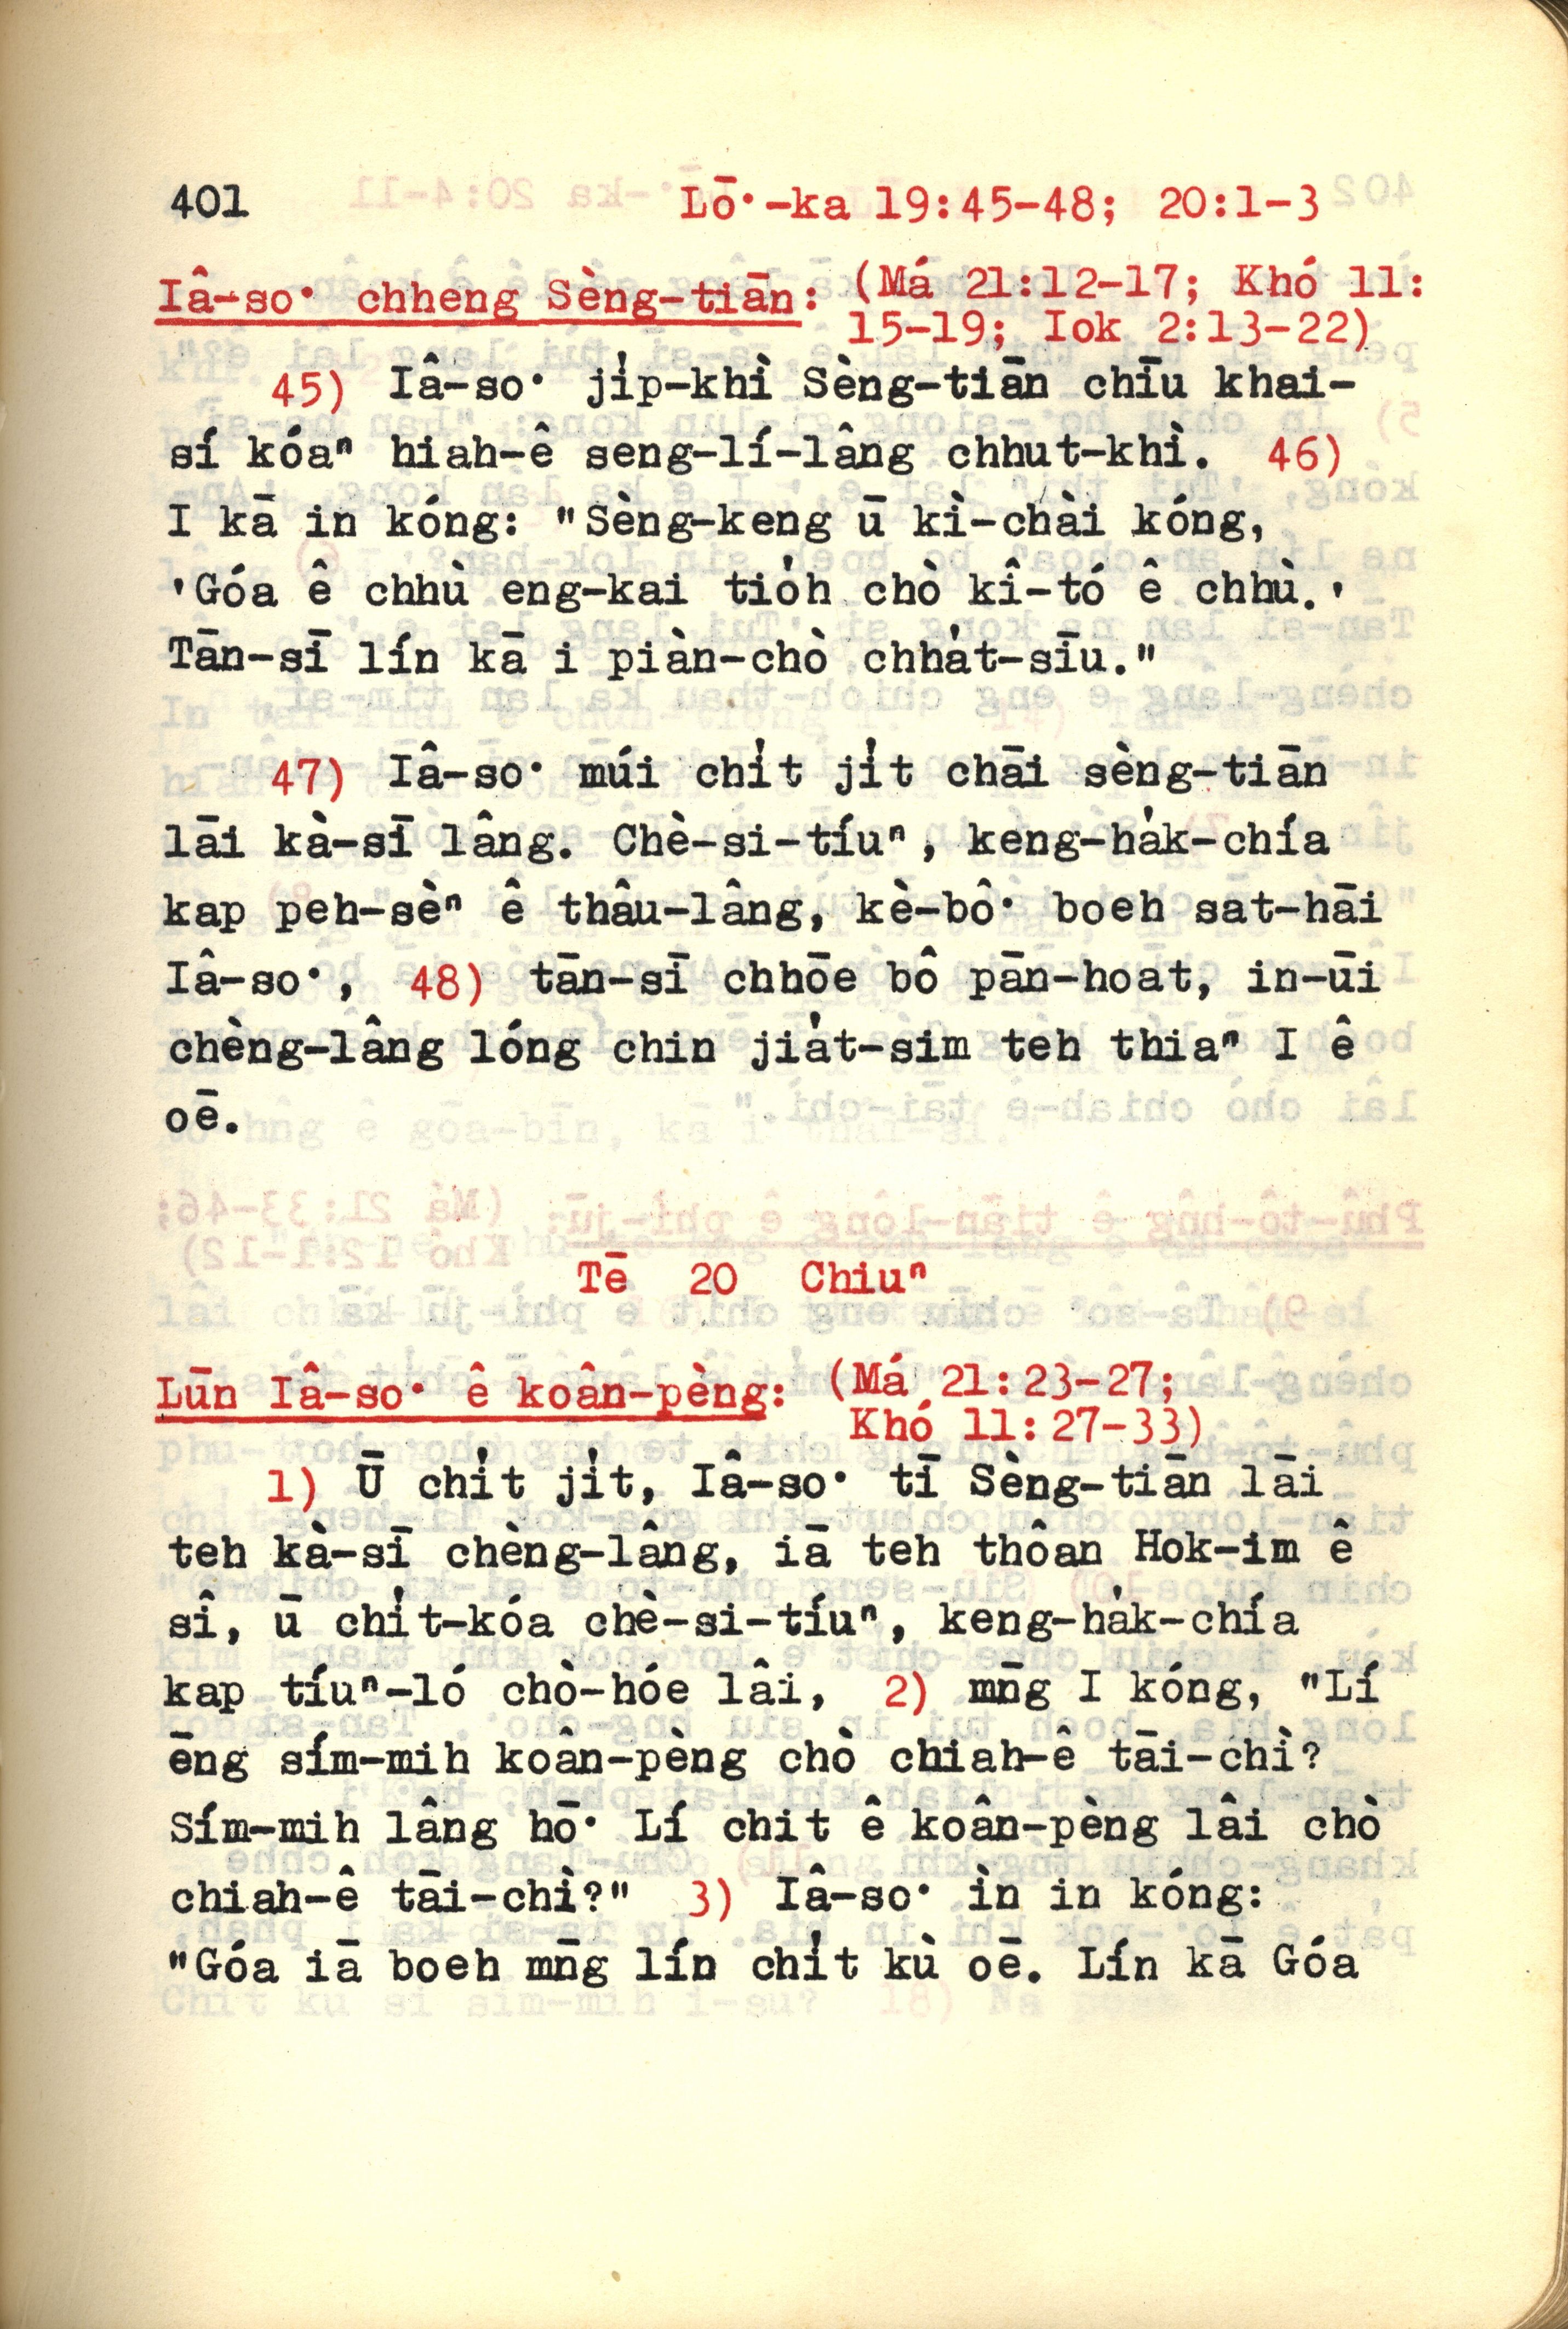 401 Lō͘-ka 19:45-48; 20:1-3
Iâ-so͘ chheng Sèng-tiān: (Má 21:12-17; Khó 11:
15-19; Iok 2:13-22)
45) Iâ-so͘ ji̍p-khì Sèng-tiān chīu khai-
sí kóaⁿ hiah-ê seng-lí-lâng chhut-khì. 46)
I kā in kóng: "Sèng-keng ū kì-chài kóng,
'Góa ê chhù eng-kai tio̍h chò kî-tó ê chhù.'
Tān-sī lín kā i piàn-chò chha̍t-sīu."
47) Iâ-so͘ múi chi̍t ji̍t chāi sèng-tiān
lāi kà-sī lâng. Chè-si-tíuⁿ, keng-ha̍k-chía
kap peh-sèⁿ ê thâu-lâng, kè-bô͘ boeh sat-hāi
Iâ-so͘, 48) tān-sī chhōe bô pān-hoat, in-ūi
chèng-lâng lóng chin jia̍t-sim teh thiaⁿ I ê
oē.
Tē 20 Chiuⁿ
Lūn Iâ-so͘ ê koân-pèng: (Má 21:23-27;
Khó 11:27-33)
1) Ū chi̍t ji̍t, Iâ-so͘ tī Sèng-tiān lāi
teh kà-sī chèng-lâng, iā teh thôan Hok-im ê
sî, ū chi̍t-kóa chè-si-tíuⁿ, keng-ha̍k-chía
kap tíuⁿ-ló chò-hóe lâi, 2) mn̄g I kóng, "Lí
ēng sím-mih koân-pèng chò chiah-ê tāi-chì?
Sím-mih lâng hō͘ Lí chit ê koân-pèng lâi chò
chiah-ê tāi-chì?" 3) Iâ-so͘ ìn in kóng:
"Góa iā boeh mn̄g lín chi̍t kù oē. Lín kā Góa